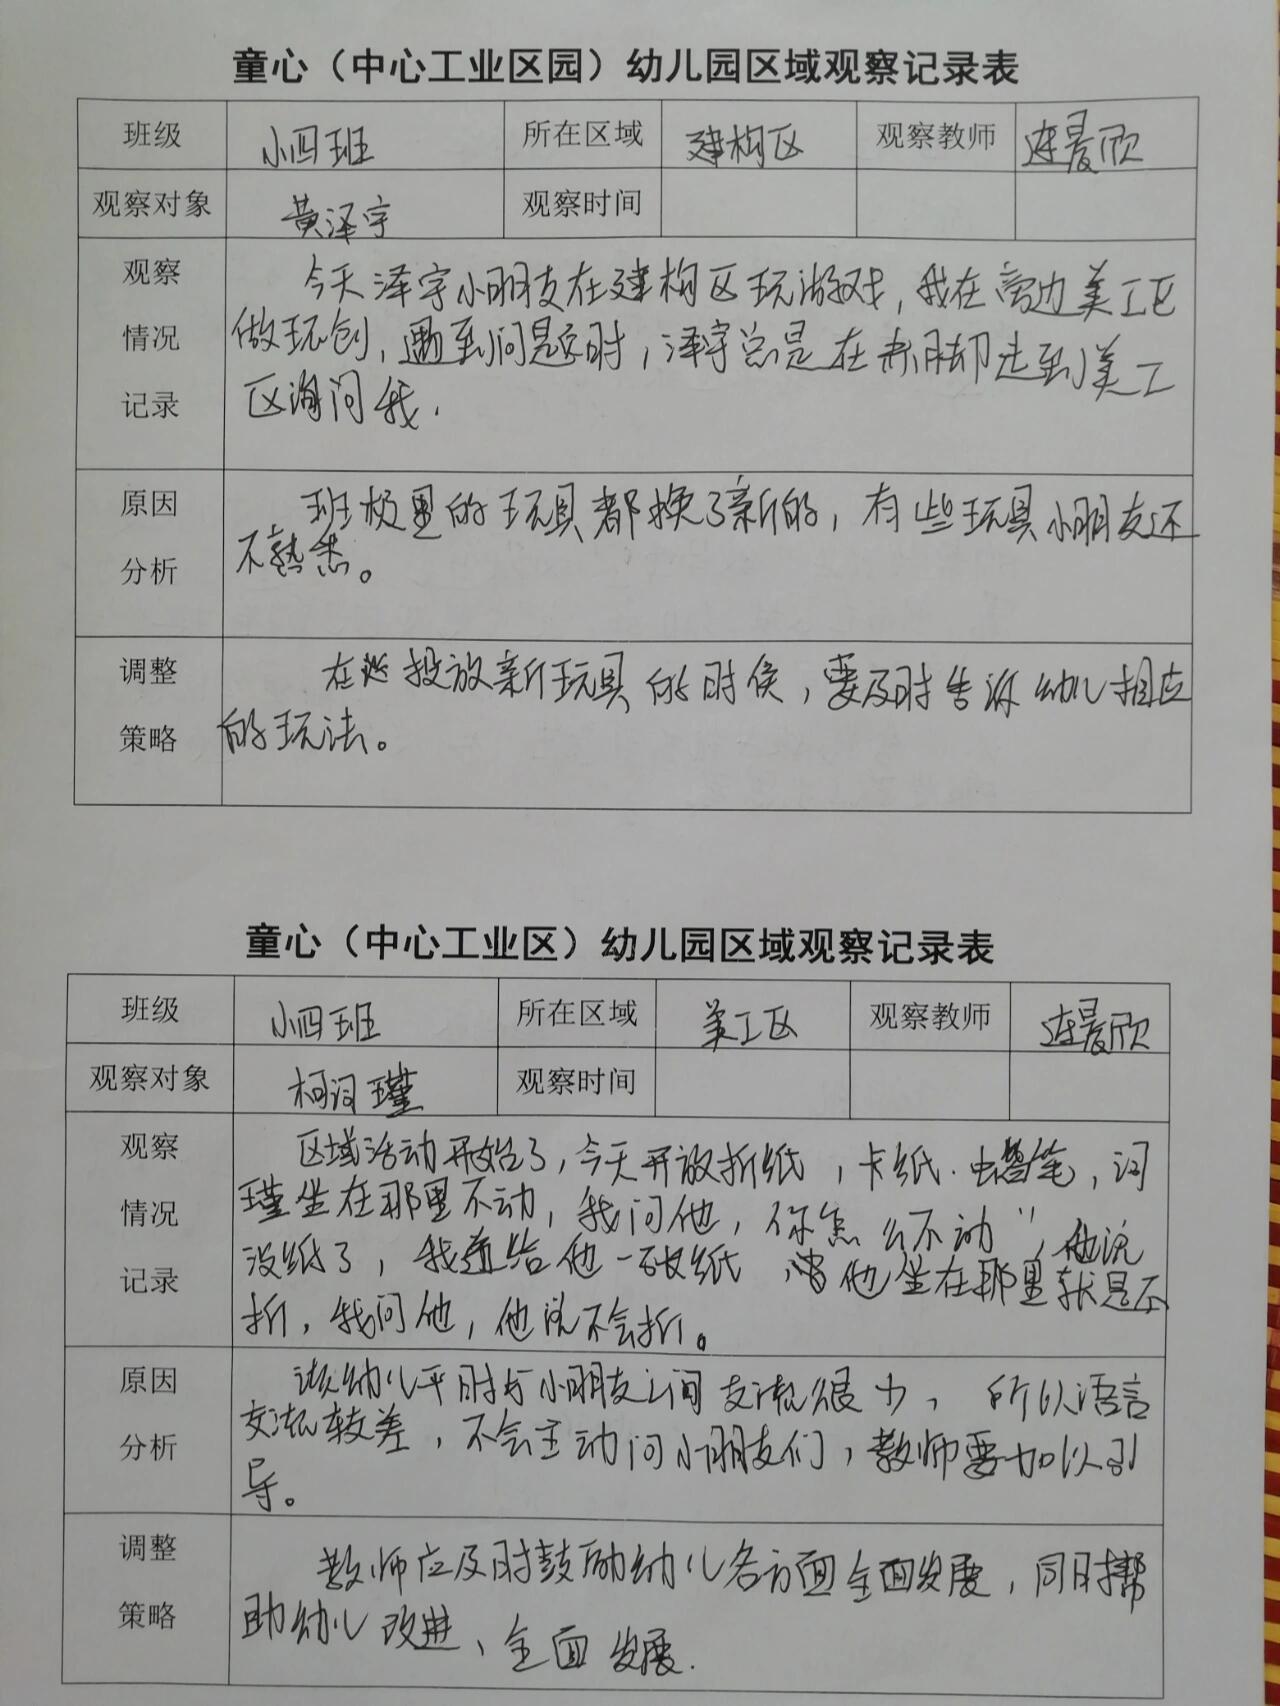 童心（中心工业区园）幼儿园区域观察记录表
班级 小四班 所在区域 建构区 观察教师 连晨欣
观察对象 黄泽宇 观察时间
观察情况记录
今天泽宇小朋友在建构区玩游戏，我在旁边美工区
做环创，遇到问题时，泽宇总是在赤脚走到美工
区询问我.
原因分析
班极里的玩具都换了新的，有些玩具小朋友还
不熟悉。
调整策略
在投放新玩具的时侯，要及时告诉幼儿相应
的玩法。
童心（中心工业区）幼儿园区域观察记录表
班级 小四班 所在区域 美工区 观察教师 连晨欣
观察对象 柯词瑾 观察时间
观察情况记录
区域活动开始了，今天开放折纸，卡纸.蜡笔，词
瑾坐在那里不动，我问他，你怎么不动”，他说
没纸了，我递给他一张纸，他坐在那里就是不
折，我问他，他说不会折。
原因分析
该幼儿平时与小朋友之间交流很少，所以语言
交流较差，不会主动问小朋友们，教师要加以引
导。
调整策略
教师应及时鼓励幼儿各方面全面发展，同时帮
助幼儿改进、全面发展.